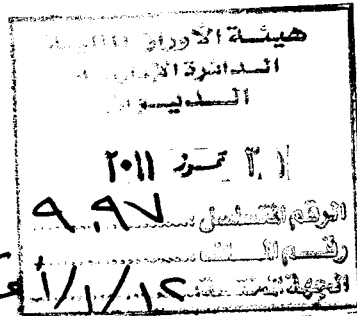 هيئة الأوراق المالية
الدائرة الإدارية
الديوان
٣١ تموز ٢٠١١
الرقم المتسلسل ٩٠٩٧
رقم الملف
الجهة المختصة ١/١/١٢